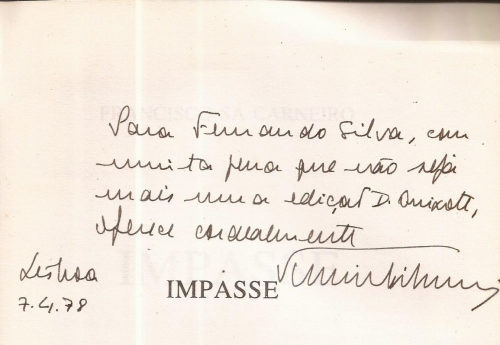 Para Fernando Silva, com
muita pena que não seja
mais uma edição D. Quixote,
oferece cordialmente
Lisboa
7.4.78
IMPASSE